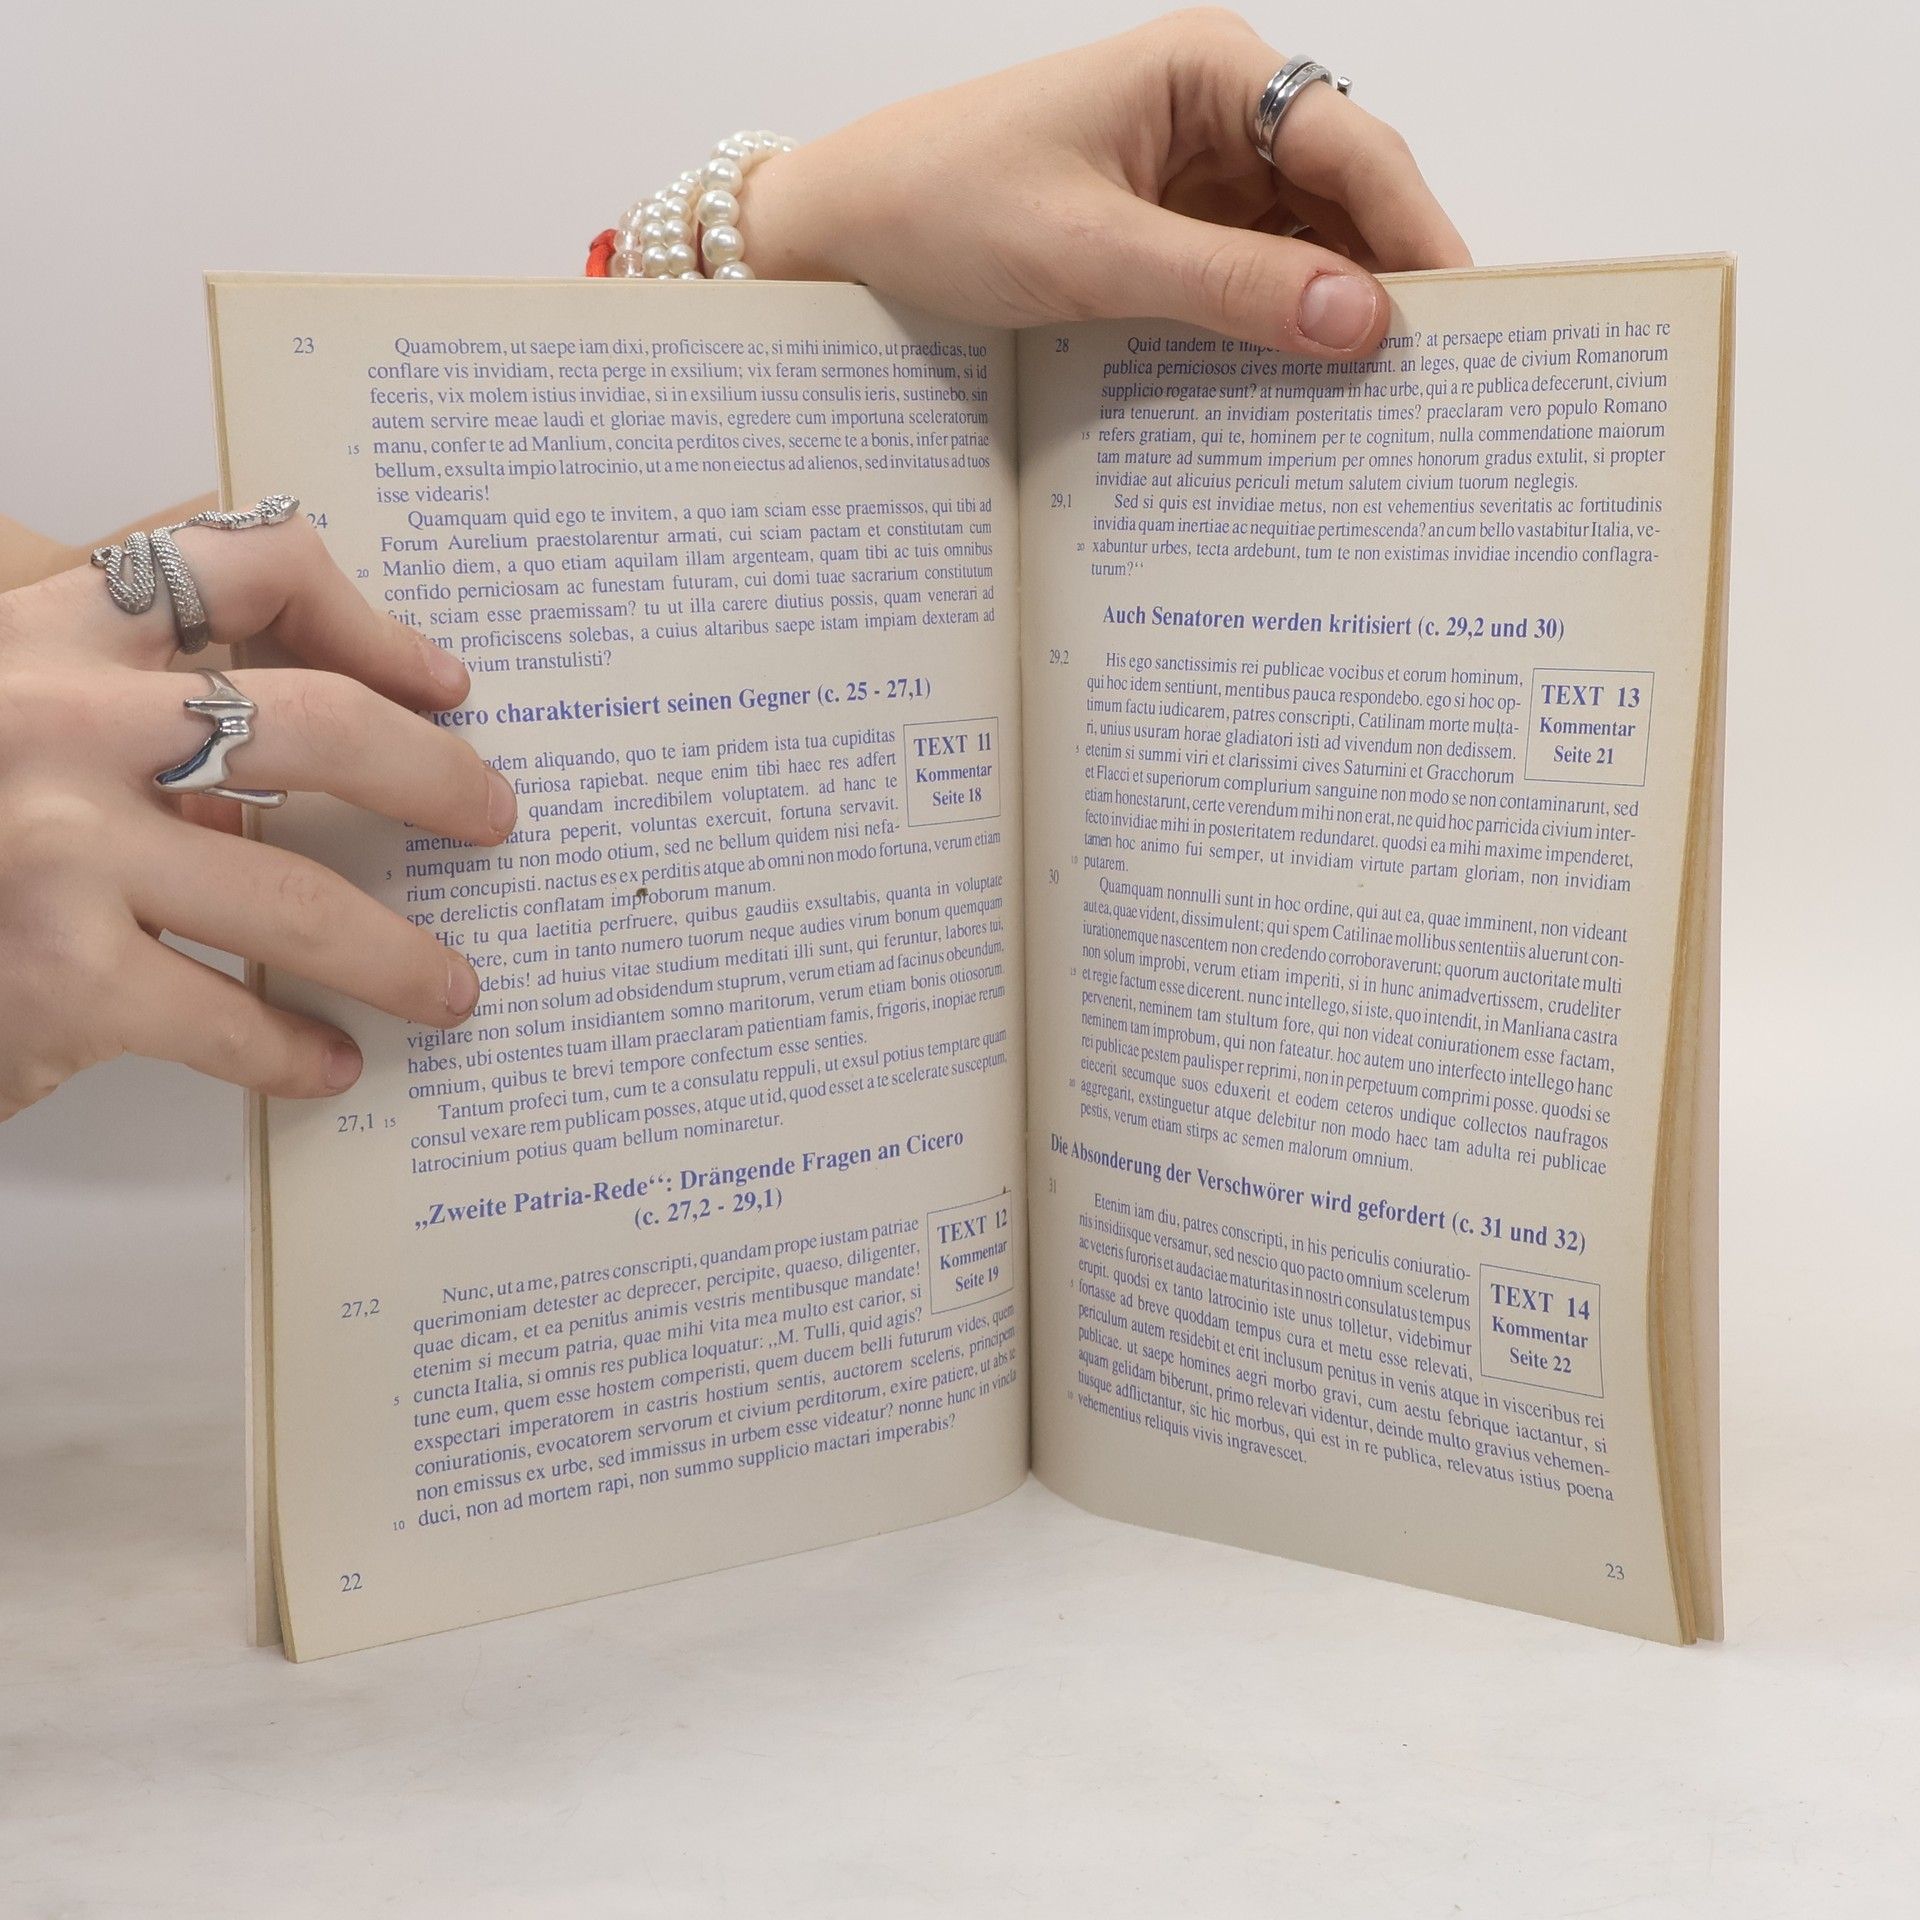 23
Quamobrem, ut saepe iam dixi, proficiscere ac, si mihi inimico, ut praedicas, tuo
conflare vis invidiam, recta perge in exsilium; vix feram sermones hominum, si id
feceris, vix molem istius invidiae, si in exsilium iussu consulis ieris, sustinebo. sin
autem servire meae laudi et gloriae mavis, egredere cum importuna sceleratorum
15 manu, confer te ad Manlium, concita perditos cives, secerne te a bonis, infer patriae
bellum, exsulta impio latrocinio, ut a me non eiectus ad alienos, sed invitatus ad tuos
isse videaris!
24
Quamquam quid ego te invitem, a quo iam sciam esse praemissos, qui tibi ad
Forum Aurelium praestolarentur armati, cui sciam pactam et constitutam cum
20 Manlio diem, a quo etiam aquilam illam argenteam, quam tibi ac tuis omnibus
confido perniciosam ac funestam futuram, cui domi tuae sacrarium constitutum
fuit, sciam esse praemissam? tu ut illa carere diutius possis, quam venerari ad
proficiscens solebas, a cuius altaribus saepe istam impiam dexteram ad
civium transtulisti?
Cicero charakterisiert seinen Gegner (c. 25 - 27,1)
aliquando, quo te iam pridem ista tua cupiditas
furiosa rapiebat. neque enim tibi haec res adfert
quandam incredibilem voluptatem. ad hanc te
amentiam natura peperit, voluntas exercuit, fortuna servavit.
5 numquam tu non modo otium, sed ne bellum quidem nisi nefa-
rium concupisti. nactus es ex perditis atque ab omni non modo fortuna, verum etiam
spe derelictis conflatam improborum manum.
TEXT 11
Kommentar
Seite 18
Hic tu qua laetitia perfruere, quibus gaudiis exsultabis, quanta in voluptate
bere, cum in tanto numero tuorum neque audies virum bonum quemquam
debis! ad huius vitae studium meditati illi sunt, qui feruntur, labores tui,
umi non solum ad obsidendum stuprum, verum etiam ad facinus obeundum,
vigilare non solum insidiantem somno maritorum, verum etiam bonis otiosorum.
habes, ubi ostentes tuam illam praeclaram patientiam famis, frigoris, inopiae rerum
omnium, quibus te brevi tempore confectum esse senties.
27,1 15
Tantum profeci tum, cum te a consulatu reppuli, ut exsul potius temptare quam
consul vexare rem publicam posses, atque ut id, quod esset a te scelerate susceptum,
latrocinium potius quam bellum nominaretur.
„Zweite Patria-Rede“: Drängende Fragen an Cicero
(c. 27,2 - 29,1)
27,2
Nunc, ut a me, patres conscripti, quandam prope iustam patriae
querimoniam detester ac deprecer, percipite, quaeso, diligenter,
quae dicam, et ea penitus animis vestris mentibusque mandate!
etenim si mecum patria, quae mihi vita mea multo est carior, si
5 cuncta Italia, si omnis res publica loquatur: „M. Tulli, quid agis?
tune eum, quem esse hostem comperisti, quem ducem belli futurum vides, quem
exspectari imperatorem in castris hostium sentis, auctorem sceleris, principem
coniurationis, evocatorem servorum et civium perditorum, exire patiere, ut abs te
non emissus ex urbe, sed immissus in urbem esse videatur? nonne hunc in vincla
10 duci, non ad mortem rapi, non summo supplicio mactari imperabis?
TEXT 12
Kommentar
Seite 19
22
28
Quid tandem te orum? at persaepe etiam privati in hac re
publica perniciosos cives morte multarunt. an leges, quae de civium Romanorum
supplicio rogatae sunt? at numquam in hac urbe, qui a re publica defecerunt, civium
iura tenuerunt. an invidiam posteritatis times? praeclaram vero populo Romano
15 refers gratiam, qui te, hominem per te cognitum, nulla commendatione maiorum
tam mature ad summum imperium per omnes honorum gradus extulit, si propter
invidiae aut alicuius periculi metum salutem civium tuorum neglegis.
29,1
Sed si quis est invidiae metus, non est vehementius severitatis ac fortitudinis
invidia quam inertiae ac nequitiae pertimescenda? an cum bello vastabitur Italia, ve-
20 xabuntur urbes, tecta ardebunt, tum te non existimas invidiae incendio conflagra-
turum?“
Auch Senatoren werden kritisiert (c. 29,2 und 30)
29,2
His ego sanctissimis rei publicae vocibus et eorum hominum,
qui hoc idem sentiunt, mentibus pauca respondebo. ego si hoc op-
timum factu iudicarem, patres conscripti, Catilinam morte multa-
ri, unius usuram horae gladiatori isti ad vivendum non dedissem.
5 etenim si summi viri et clarissimi cives Saturnini et Gracchorum
et Flacci et superiorum complurium sanguine non modo se non contaminarunt, sed
etiam honestarunt, certe verendum mihi non erat, ne quid hoc parricida civium inter-
fecto invidiae mihi in posteritatem redundaret. quodsi ea mihi maxime impenderet,
tamen hoc animo fui semper, ut invidiam virtute partam gloriam, non invidiam
10 putarem.
TEXT 13
Kommentar
Seite 21
30
Quamquam nonnulli sunt in hoc ordine, qui aut ea, quae imminent, non videant
aut ea, quae vident, dissimulent; qui spem Catilinae mollibus sententiis aluerunt con-
iurationemque nascentem non credendo corroboraverunt; quorum auctoritate multi
non solum improbi, verum etiam imperiti, si in hunc animadvertissem, crudeliter
15 et regie factum esse dicerent. nunc intellego, si iste, quo intendit, in Manliana castra
pervenerit, neminem tam stultum fore, qui non videat coniurationem esse factam,
neminem tam improbum, qui non fateatur. hoc autem uno interfecto intellego hanc
rei publicae pestem paulisper reprimi, non in perpetuum comprimi posse. quodsi se
eiecerit secumque suos eduxerit et eodem ceteros undique collectos naufragos
20 aggregarit, exstinguetur atque delebitur non modo haec tam adulta rei publicae
pestis, verum etiam stirps ac semen malorum omnium.
Die Absonderung der Verschwörer wird gefordert (c. 31 und 32)
31
Etenim iam diu, patres conscripti, in his periculis coniuratio-
nis insidiisque versamur, sed nescio quo pacto omnium scelerum
ac veteris furoris et audaciae maturitas in nostri consulatus tempus
erupit. quodsi ex tanto latrocinio iste unus tolletur, videbimur
5 fortasse ad breve quoddam tempus cura et metu esse relevati,
periculum autem residebit et erit inclusum penitus in venis atque in visceribus rei
publicae. ut saepe homines aegri morbo gravi, cum aestu febrique iactantur, si
aquam gelidam biberunt, primo relevari videntur, deinde multo gravius vehemen-
tiusque adflictantur, sic hic morbus, qui est in re publica, relevatus istius poena
10 vehementius reliquis vivis ingravescet.
TEXT 14
Kommentar
Seite 22
23